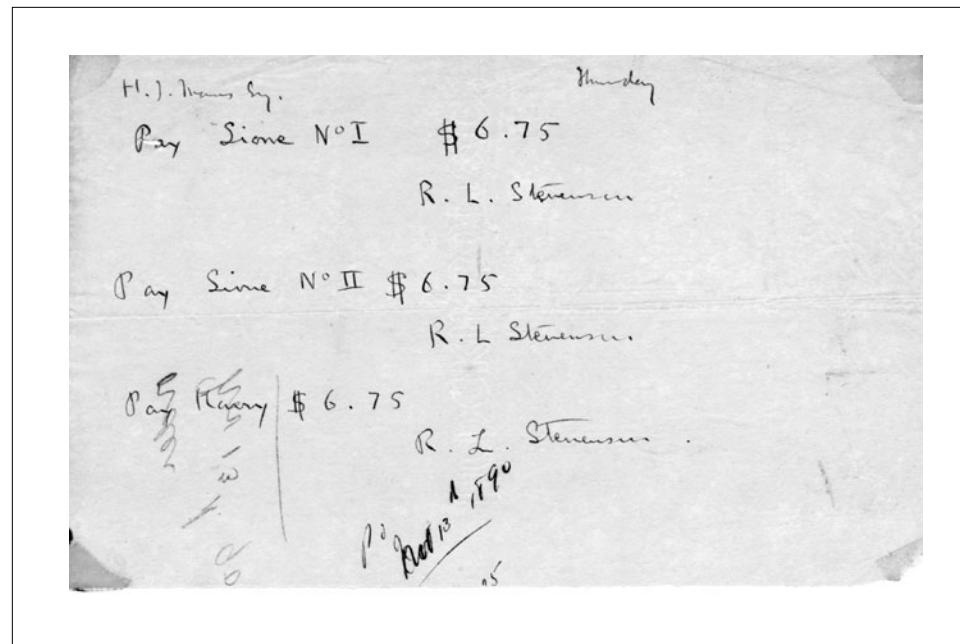 H. J. Moors Esq. Thursday
Pay Sione No I $ 6.75
R. L. Stevenson
Pay Sione No II $ 6.75
R. L Stevenson
Pay Harry $ 6.75
R. L. Stevenson.
Nov 13 1890